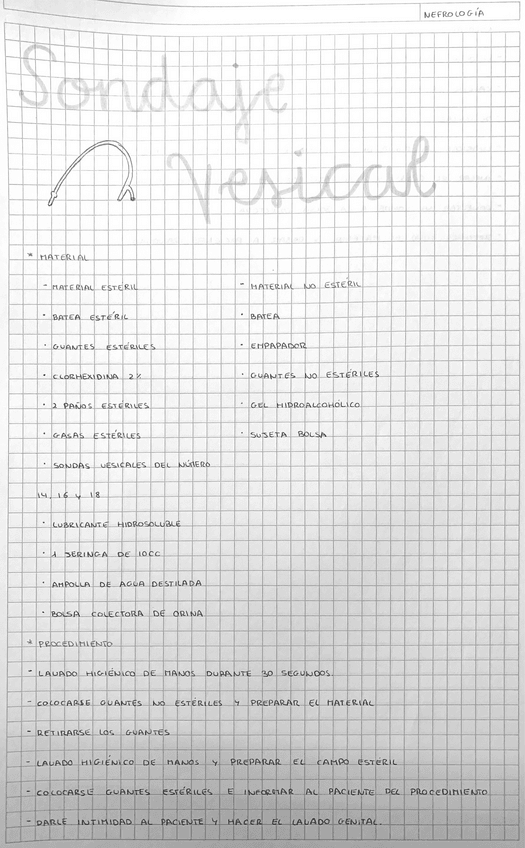 NEFROLOGÍA
Sondaje
Vesical
* MATERIAL
- MATERIAL ESTERIL
- MATERIAL NO ESTÉRIL
· BATEA ESTÉRIL
· BATEA
· GUANTES ESTÉRILES
· EMPAPADOR
· CLORHEXIDINA 2%
· GUANTES NO ESTÉRILES
· 2 PAÑOS ESTÉRILES
· GEL HIDROALCOHÓLICO
· GASAS ESTÉRILES
· SUJETA BOLSA
· SONDAS VESICALES DEL NÚMERO
14, 16 Y 18
· LUBRICANTE HIDROSOLUBLE
· 1 JERINGA DE 10CC
· AMPOLLA DE AGUA DESTILADA
· BOLSA COLECTORA DE ORINA
* PROCEDIMIENTO
- LAVADO HIGIÉNICO DE MANOS DURANTE 30 SEGUNDOS.
- COLOCARSE GUANTES NO ESTÉRILES Y PREPARAR EL MATERIAL
- RETIRARSE LOS GUANTES
- LAVADO HIGIÉNICO DE MANOS Y PREPARAR EL CAMPO ESTÉRIL
- COLOCARSE GUANTES ESTÉRILES E INFORMAR AL PACIENTE DEL PROCEDIMIENTO
- DARLE INTIMIDAD AL PACIENTE Y HACER EL LAVADO GENITAL.